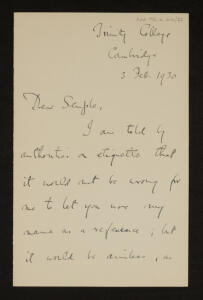 Trinity College
Cambridge
3 Feb. 1930
Dear Semple,
I am told by
authorities on etiquette that
it would not be wrong for
me to let you use my
name as a reference ; but
it would be aimless, as